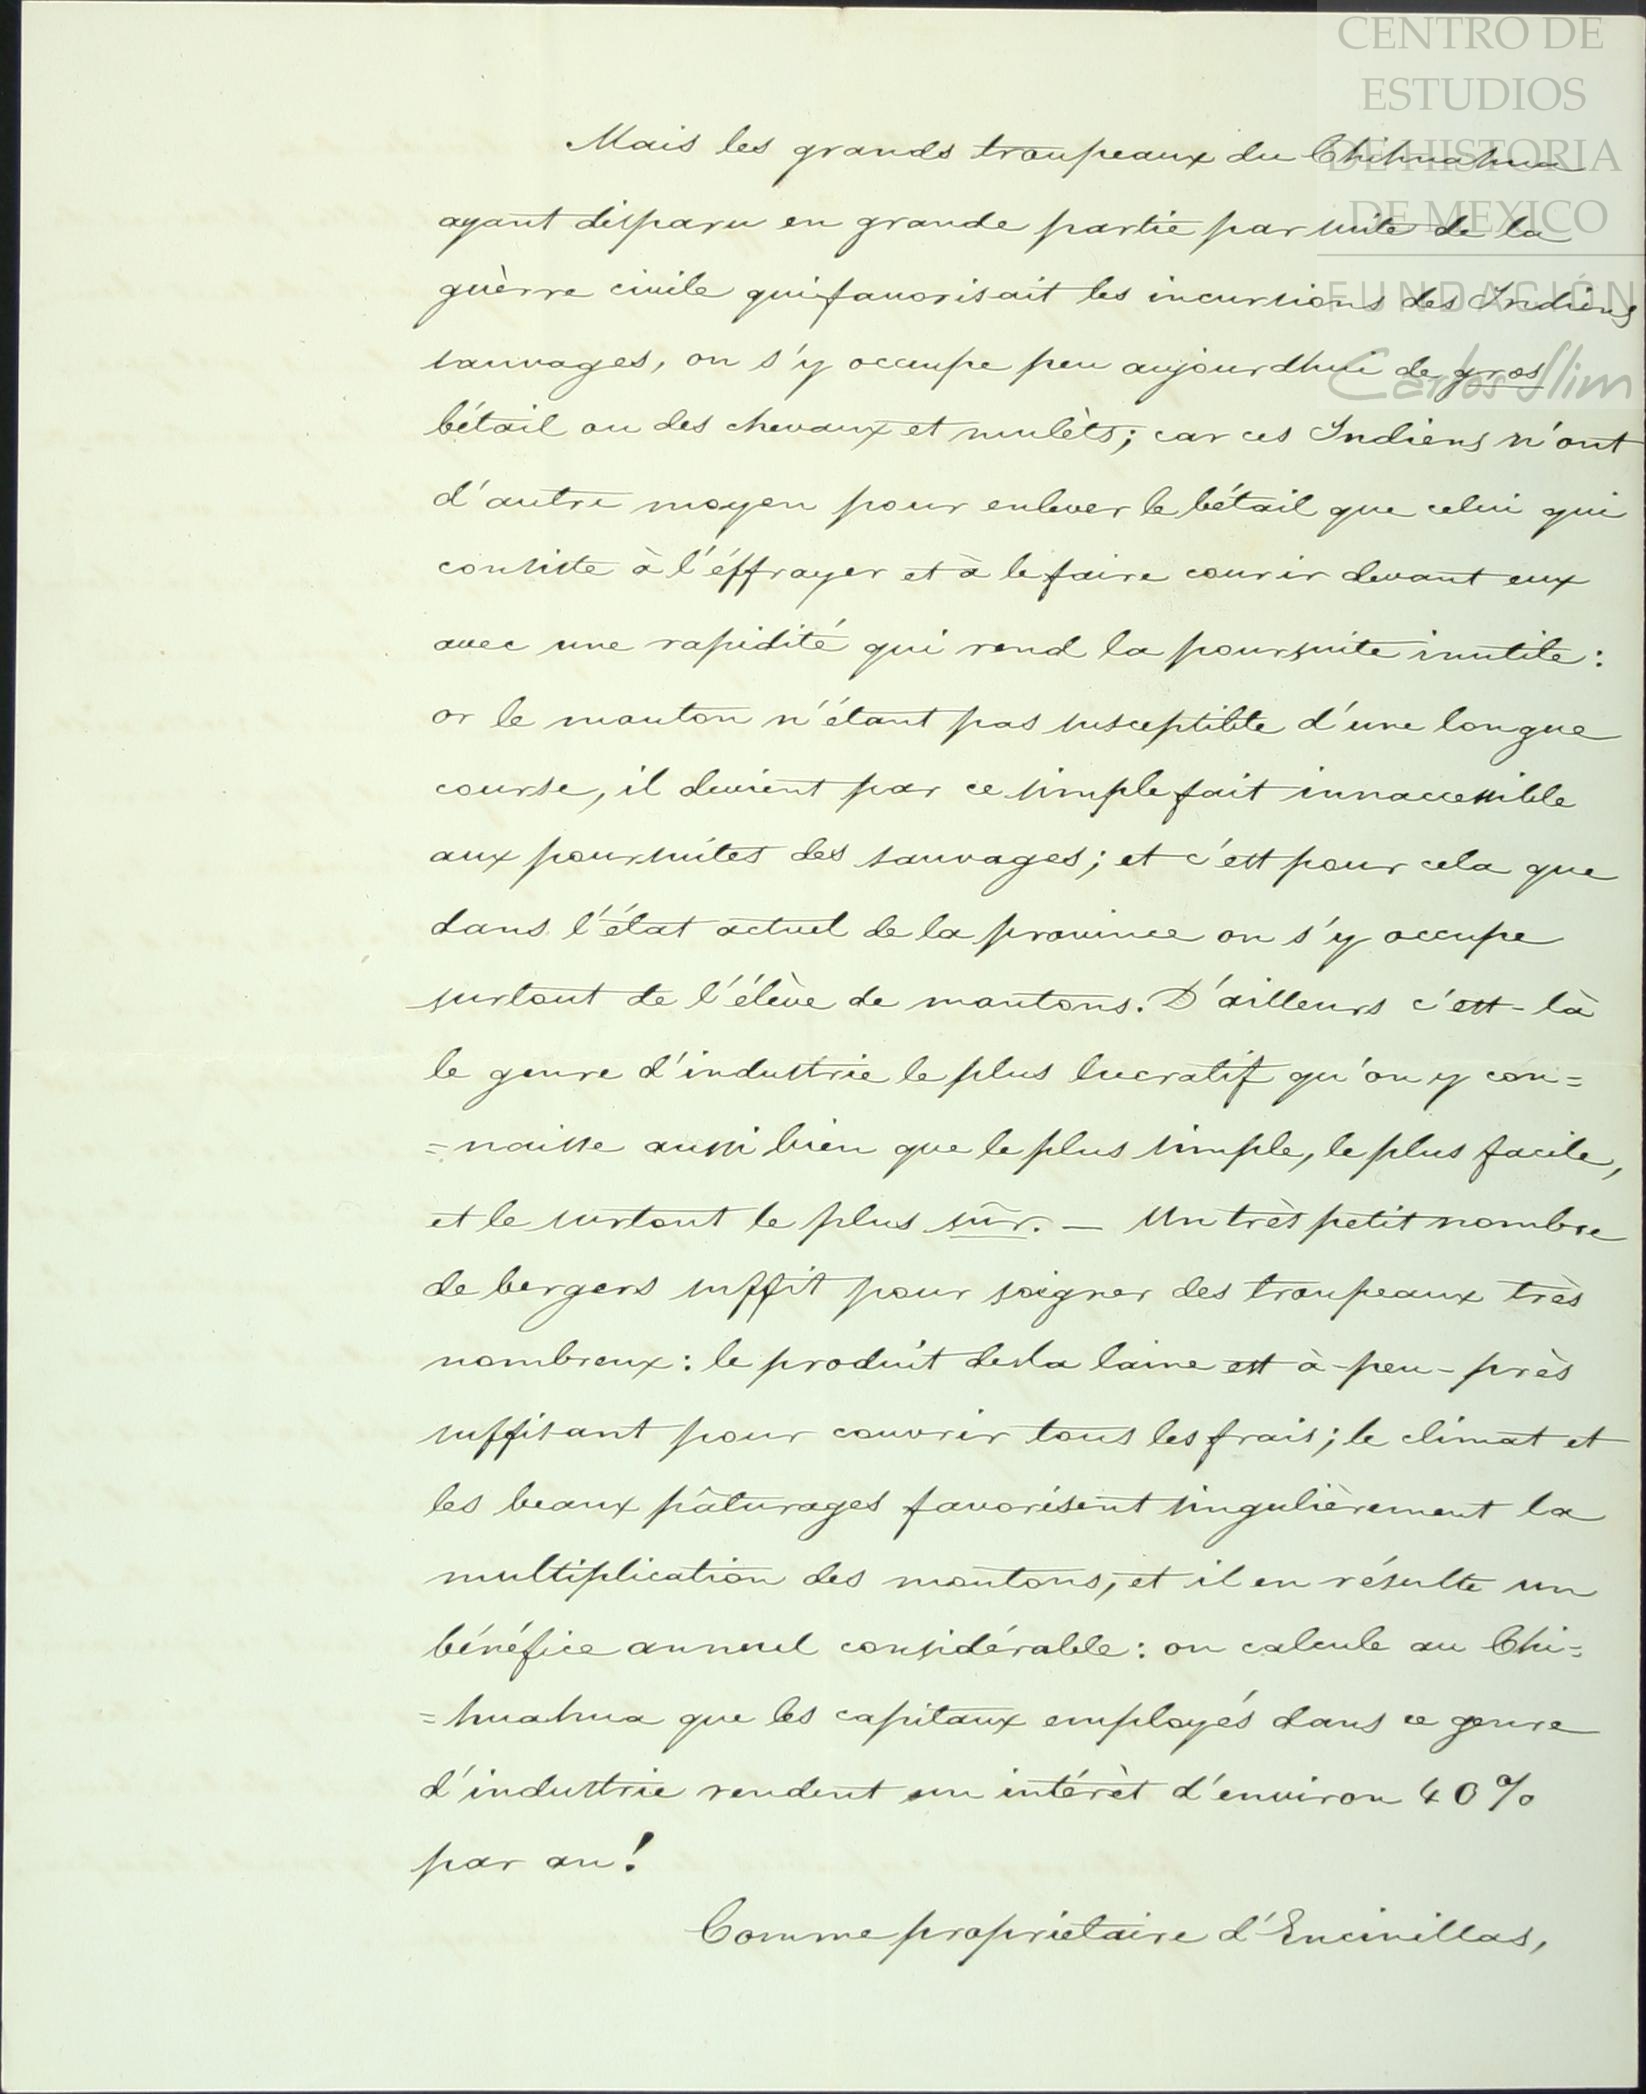 CENTRO DE
ESTUDIOS
DE HISTORIA
DE MEXICO
FUNDACIÓN
Carlos Slim
Mais les grands troupeaux du Chihuahua
ayant disparu en grande partie par suite de la
guèrre civile qui favorisait les incursions des Indiens
sauvages, on s'y occupe peu aujourdhui de gros
bétail ou des chevaux et mulèts; car ces Indiens n'ont
d'autre moyen pour enlever le bétail que celui qui
consiste à l'éffrayer et à le faire courir devant eux
avec une rapidité qui rend la poursuite inutile:
or le mouton n'étant pas susceptible d'une longue
course, il devient par ce simple fait innaccessible
aux poursuites des sauvages; et c'est pour cela que
dans l'état actuel de la province on s'y occupe
surtout de l'élève de moutons. D'ailleurs c'est-là
le genre d'industrie le plus lucratif qu'on y con=
=naisse aussi bien que le plus simple, le plus facile,
et le surtout le plus sûr. — Un très petit nombre
de bergers suffit pour soigner des troupeaux très
nombreux: le produit de la laine est à-peu-près
suffisant pour couvrir tous les frais; le climat et
les beaux pâturages favorisent singulièrement la
multiplication des moutons, et il en résulte un
bénéfice annuel considérable: on calcule au Chi=
=huahua que les capitaux employés dans ce genre
d'industrie rendent un intérèt d'environ 40%
par an!
Comme propriétaire d'Encinillas,